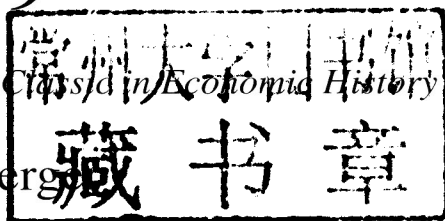 常州大学图书馆
Classic in Economic History
藏书章
erge